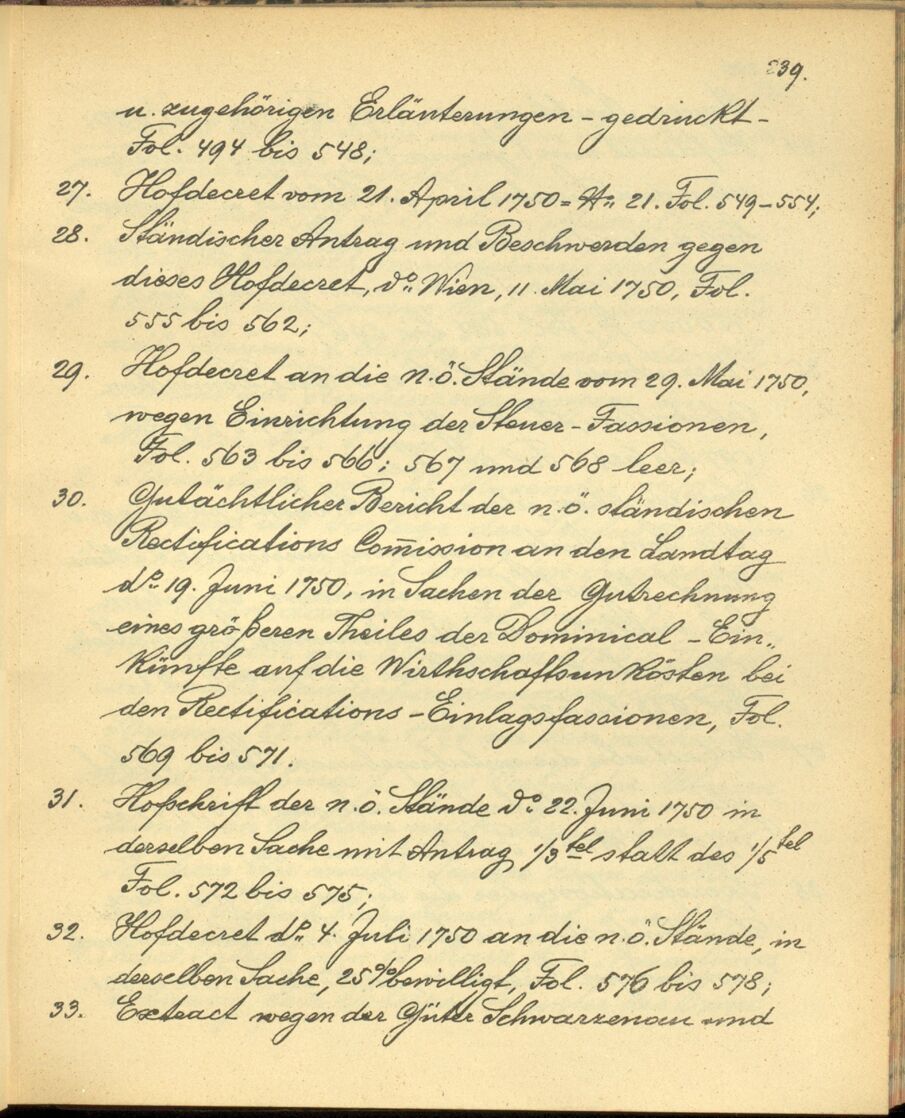 239.
u. zugehörigen Erläuterungen - gedruckt -
Fol. 494 bis 548;
27. Hofdecret vom 21. April 1750 = No 21. Fol. 549-554;
28. Ständischer Antrag und Beschwerden gegen
dieses Hofdecret, do Wien, 11. Mai 1750, Fol.
555 bis 562;
29. Hofdecret an die n.ö. Stände vom 29. Mai 1750,
wegen Einrichtung der Steuer-Fassionen,
Fol. 563 bis 566; 567 und 568 leer;
30. Gutächtlicher Bericht der n.ö. ständischen
Rectifications Com̅ission an den Landtag
do 19. Juni 1750, in Sachen der Gutrechnung
eines größeren Theiles der Dominical-Ein„
künfte auf die Wirthschaftsunkösten bei
den Rectifications-Einlagsfassionen, Fol.
569 bis 571.
31. Hofschrift der n.ö. Stände do 22. Juni 1750 in
derselben Sache mit Antrag 1/3tel statt des 1/5tel
Fol. 572 bis 575;
32. Hofdecret do 4. Juli 1750 an die n.ö. Stände, in
derselben Sache, 25% bewilligt, Fol. 576 bis 578;
33. Extract wegen der Güter Schwarzenau und